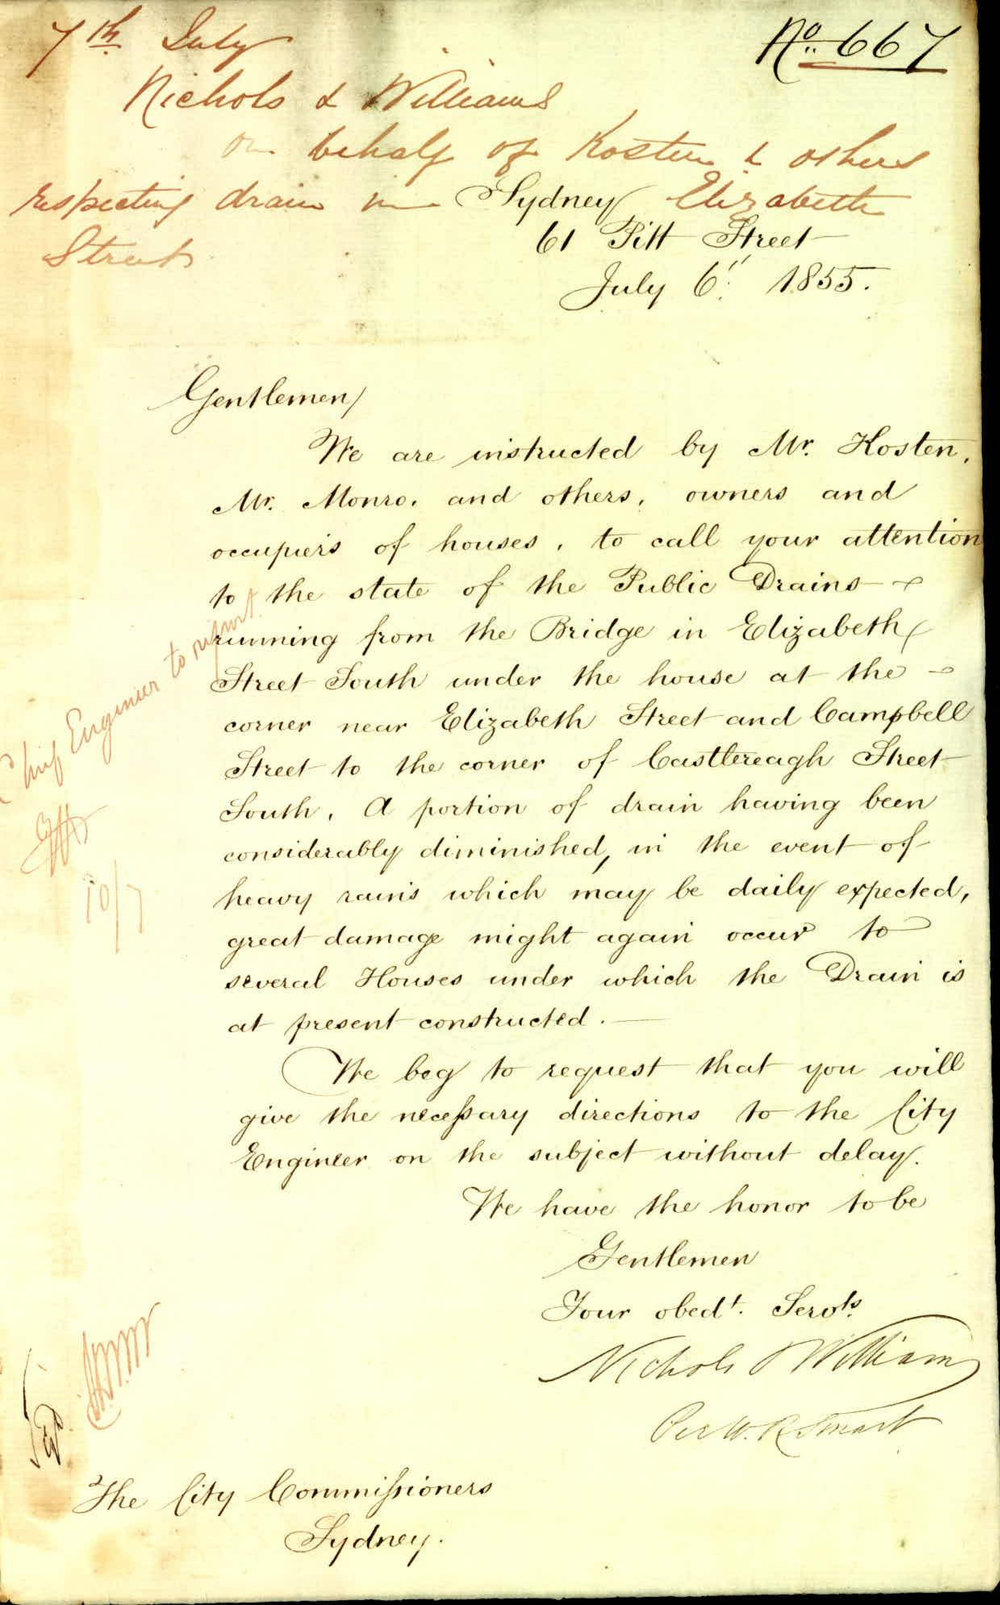 7th July
No. 667
Nichols & Williams
on behalf of Kosten & others
respecting drain in Elizabeth
Street
Sydney
61 Pitt Street
July 6" 1855.
Gentlemen/
We are instructed by Mr. Hosten,
Mr. Monro, and others, owners and
occupiers of houses, to call your attention
to the state of the Public Drains
running from the Bridge in Elizabeth
Street South under the house at the
corner near Elizabeth Street and Campbell
Street to the corner of Castlereagh Street
South. A portion of drain having been
considerably diminished, in the event of
heavy rains which may be daily expected,
great damage might again occur to
several Houses under which the Drain is
at present constructed.
Chief Engineer to report
10/7
We beg to request that you will
give the necessary directions to the City
Engineer on the subject without delay.
We have the honor to be
Gentlemen
Your obedt. Servts.
Nichols & Williams
Per W. R. Smart
The City Commissioners
Sydney.